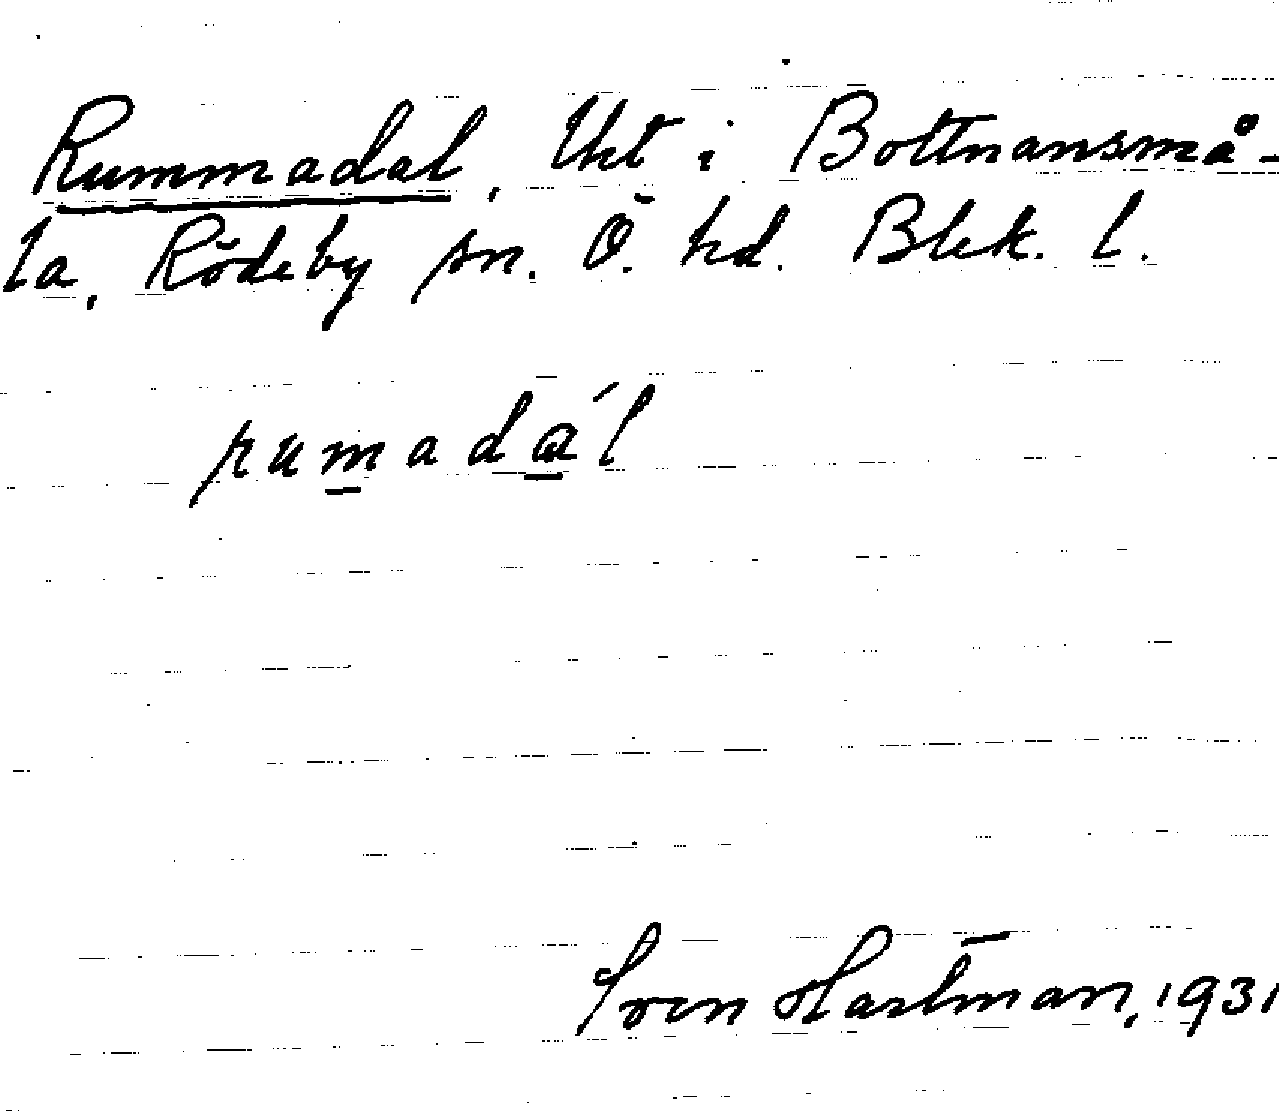 Rummadal, Ukt i Bottnansmå-
la, Rödeby sn. Ö. hd. Blek. l.
rumadál
Sven Hartman, 1931